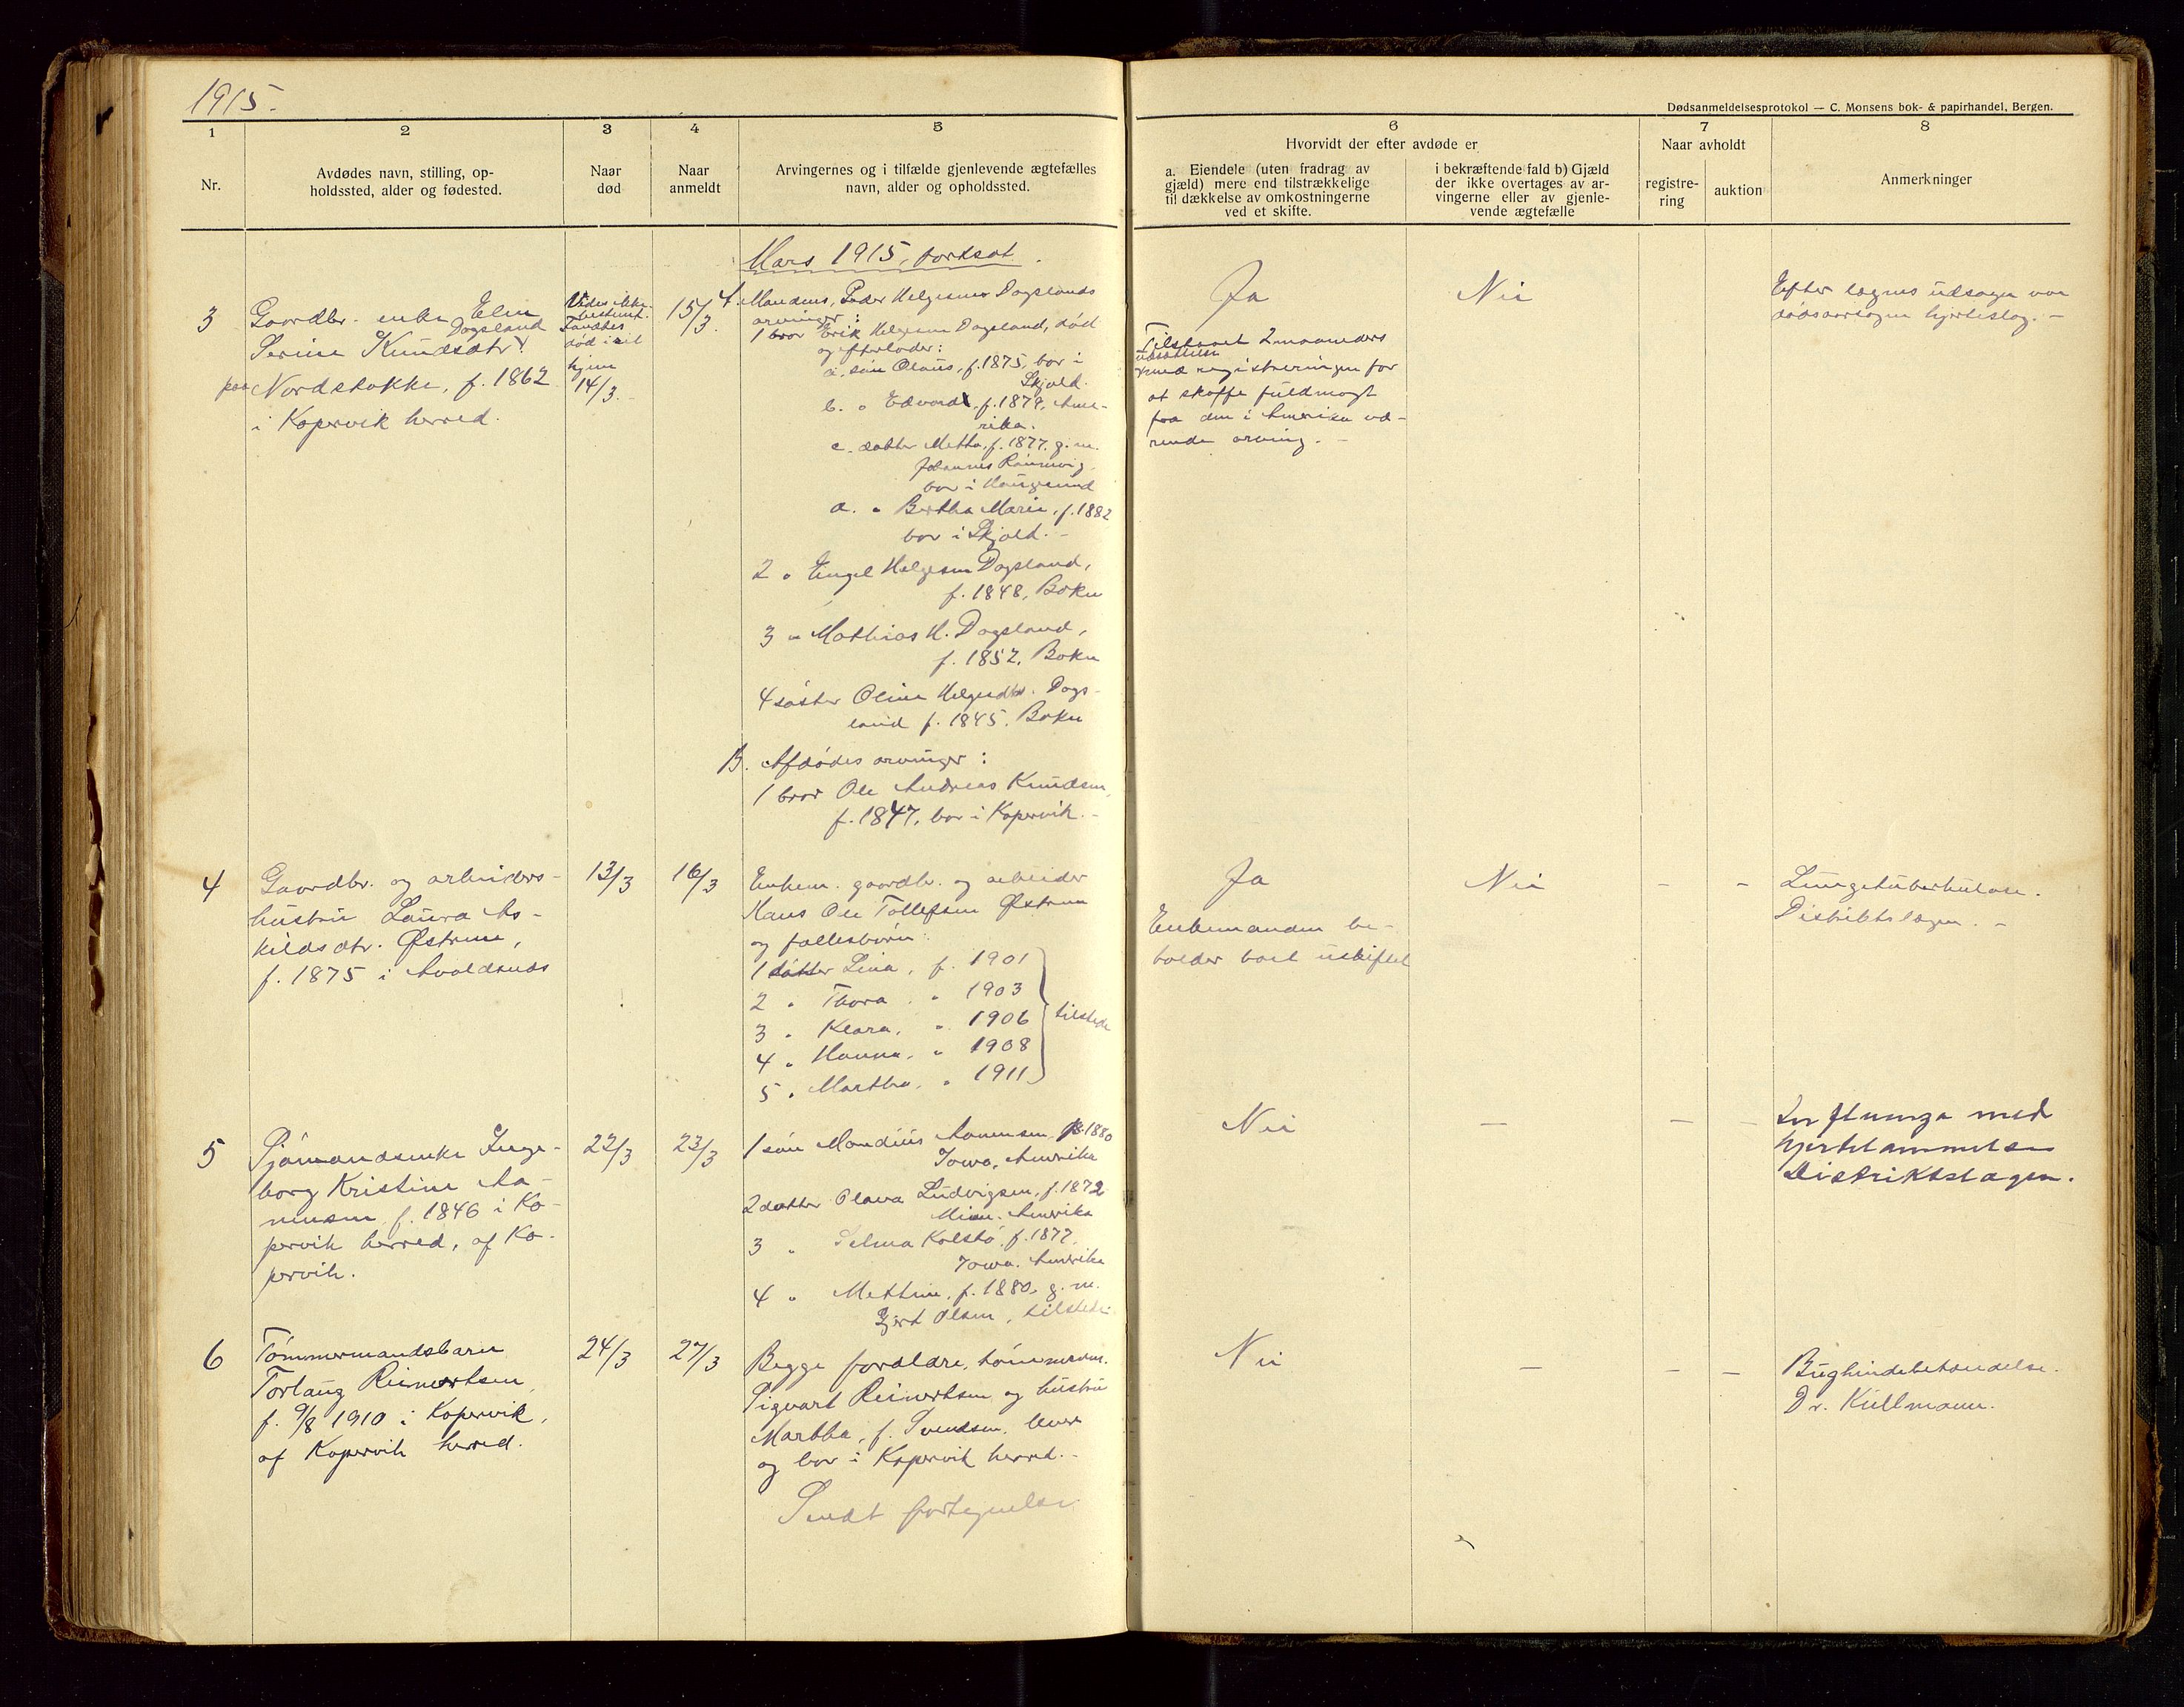 1915.
Dødsanmeldelsesprotokol — C. Monsens bok- & papirhandel, Bergen.
1
Nr.
2
Avdødes navn, stilling, op-
holdssted, alder og fødested.
3
Naar
død
4
Naar
anmeldt
5
Arvingernes og i tilfælde gjenlevende ægtefælles
navn, alder og opholdssted.
6
Hvorvidt der efter avdøde er
a. Eiendele (uten fradrag av
gjæld) mere end tilstrækkelige
til dækkelse av omkostningerne
ved et skifte.
i bekræftende fald b) Gjæld
der ikke overtages av ar-
vingerne eller av gjenle-
vende ægtefælle
7
Naar avholdt
registre-
ring
auktion
8
Anmerkninger
Mars 1915, fortsat.
3
Gaardbr. enke Elen
Serine Knudsdtr. Dagsland
paa Nordstokke, f. 1862
i Kopervik herred.
Vides ikke
bestemt.
Fandtes
død i sit
hjem
14/3.
15/3.
A. Mandens, Peder Helgesens Dagslands
arvinger:
1 bror Erik Helgesen Dagsland, død
og efterlader:
a. søn Olaus, f. 1875, bor i
Skjold.
b. " Edvard, f. 1879, Ame-
rika.
c. datter Metha, f. 1877. g. m.
Johannes
bor i Haugesund
d. " Bertha Marie, f. 1882
bor i Skjold. -
2 " Engel Helgesen Dagsland,
f. 1848, Bokn
3 " Mathias H. Dagsland,
f. 1852, Bokn
4 søster Oline Helgesdtr. Dags-
land f. 1845. Bokn
B. Afdødes arvinger:
1 bror Ole Andreas Knudsen,
f. 1847, bor i Kopervik. -
Ja
Tilstaaet 2 maaneders
udsættelse
med registreringen for
at skaffe fuldmagt
fra den i Amerika væ-
rende arving. -
Nei
Efter lægens udsagn var
dødsaarsagen hjerteslag. -
4
Gaardbr. og arbeiders-
hustru Laura As-
kildsdtr. Østrem,
f. 1875 i Avaldsnes
13/3
16/3
Enkem. gaardbr. og arbeider
Hans Ole Tollefsen Østrem
og fællesbørn:
1 datter Lina, f. 1901
2 " Thora " 1903
3 " Klara, " 1906
4 " Hanna, " 1908
5 " Martha, " 1911
tilstede
Ja
Enkemanden be-
holder boet uskiftet
Nei
-
-
Lungetuberkulose.
Distriktslægen. -
5
Sjømandsenke Inge-
borg Kristine Aa-
nensen, f. 1846 i Ko-
pervik herred, af Ko-
pervik.
22/3
23/3
1 søn Mandius Aanensen, f. 1880
Iowa, Amerika
2 datter Olava Ludvigsen, f. 1872
Minn. Amerika
3 " Selma Kolstø, f. 1877,
Iowa. Amerika
4 " Mettine, f. 1880, g. m.
Gjert Olsen, tilstede
Nei
-
-
-
Influenza med
hjertelammelse
Distriktslægen.
6
Tømmermandsbarn
Torlaug Reinertsen,
f. 9/8 1910 i Kopervik,
af Kopervik herred.
24/3
27/3
Begge forældre, tømmerm.
Sigvart Reinertsen og hustru
Martha, f. Svendsen, lever
og bor i Kopervik herred. -
Sendt fortegnelse
Nei
-
-
-
Bughindebetændelse.
Dr. Kullmann.